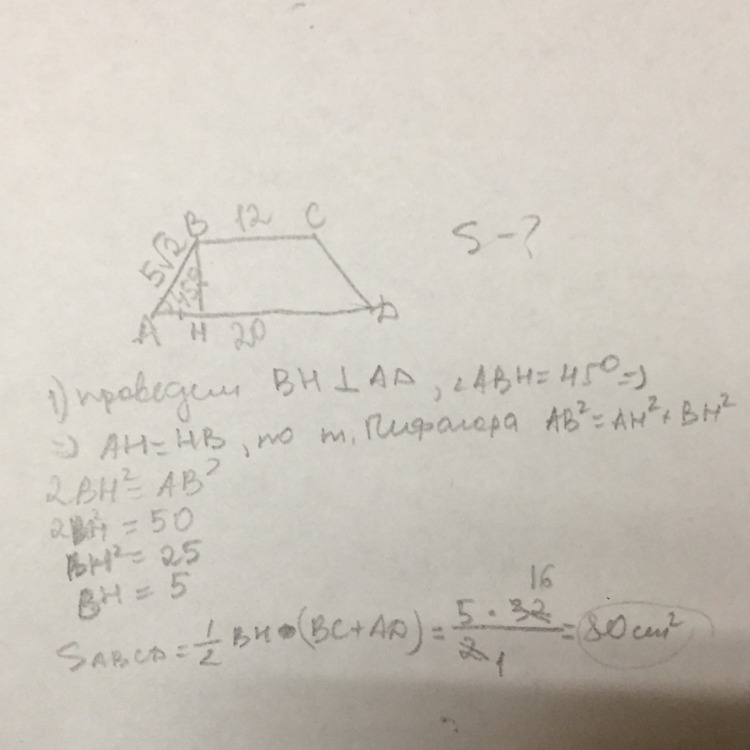 B 12 C
5√2
45°
S-?
A H 20 D
1) проведем BH⊥AD, ∠ABH=45°=>
=> AH=HB, по т. Пифагора AB²=AH²+BH²
2BH²=AB²
2BH²=50
BH²=25
BH=5
S ABCD = 1/2 BH•(BC+AD) = 5·32/2 = 80 cm²
16
1